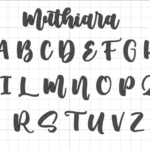 Muthiara
A B C D E F G
I L M N O P Q
R S T U V Z